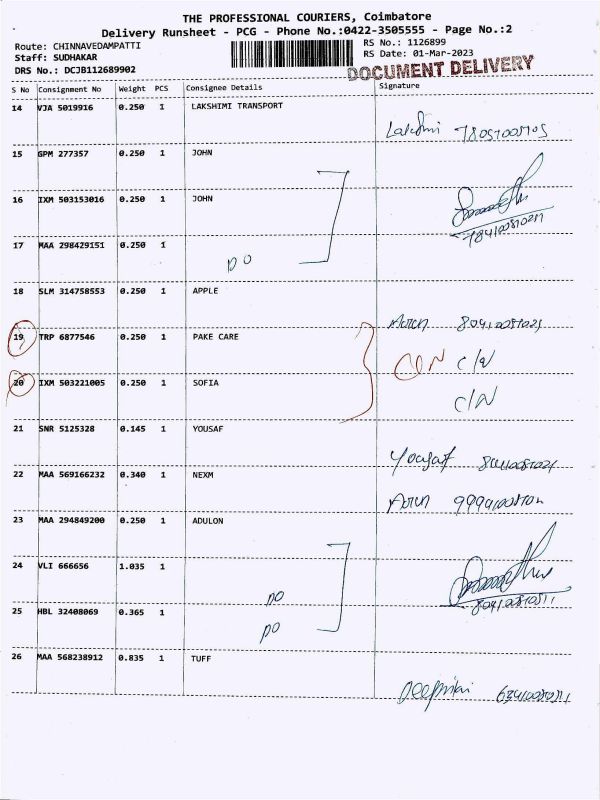 THE PROFESSIONAL COURIERS, Coimbatore
Delivery Runsheet - PCG - Phone No.:0422-3505555 - Page No.:2
Route: CHINNAVEDAMPATTI
Staff: SUDHAKAR
DRS No.: DCJB112689902
RS No.: 1126899
RS Date: 01-Mar-2023
DOCUMENT DELIVERY
S No Consignment No Weight PCS Consignee Details Signature
14 VJA 5019916 0.250 1 LAKSHIMI TRANSPORT
Lakshmi
15 GPM 277357 0.250 1 JOHN
16 IXM 503153016 0.250 1 JOHN
17 MAA 298429151 0.250 1
DO
18 SLM 314758553 0.250 1 APPLE
19 TRP 6877546 0.250 1 PAKE CARE
CON C/N
20 IXM 503221005 0.250 1 SOFIA
C/N
21 SNR 5125328 0.145 1 YOUSAF
Yousaf
22 MAA 569166232 0.340 1 NEXM
23 MAA 294849200 0.250 1 ADULON
24 VLI 666656 1.035 1
DO
25 HBL 32408069 0.365 1
DO
26 MAA 568238912 0.835 1 TUFF